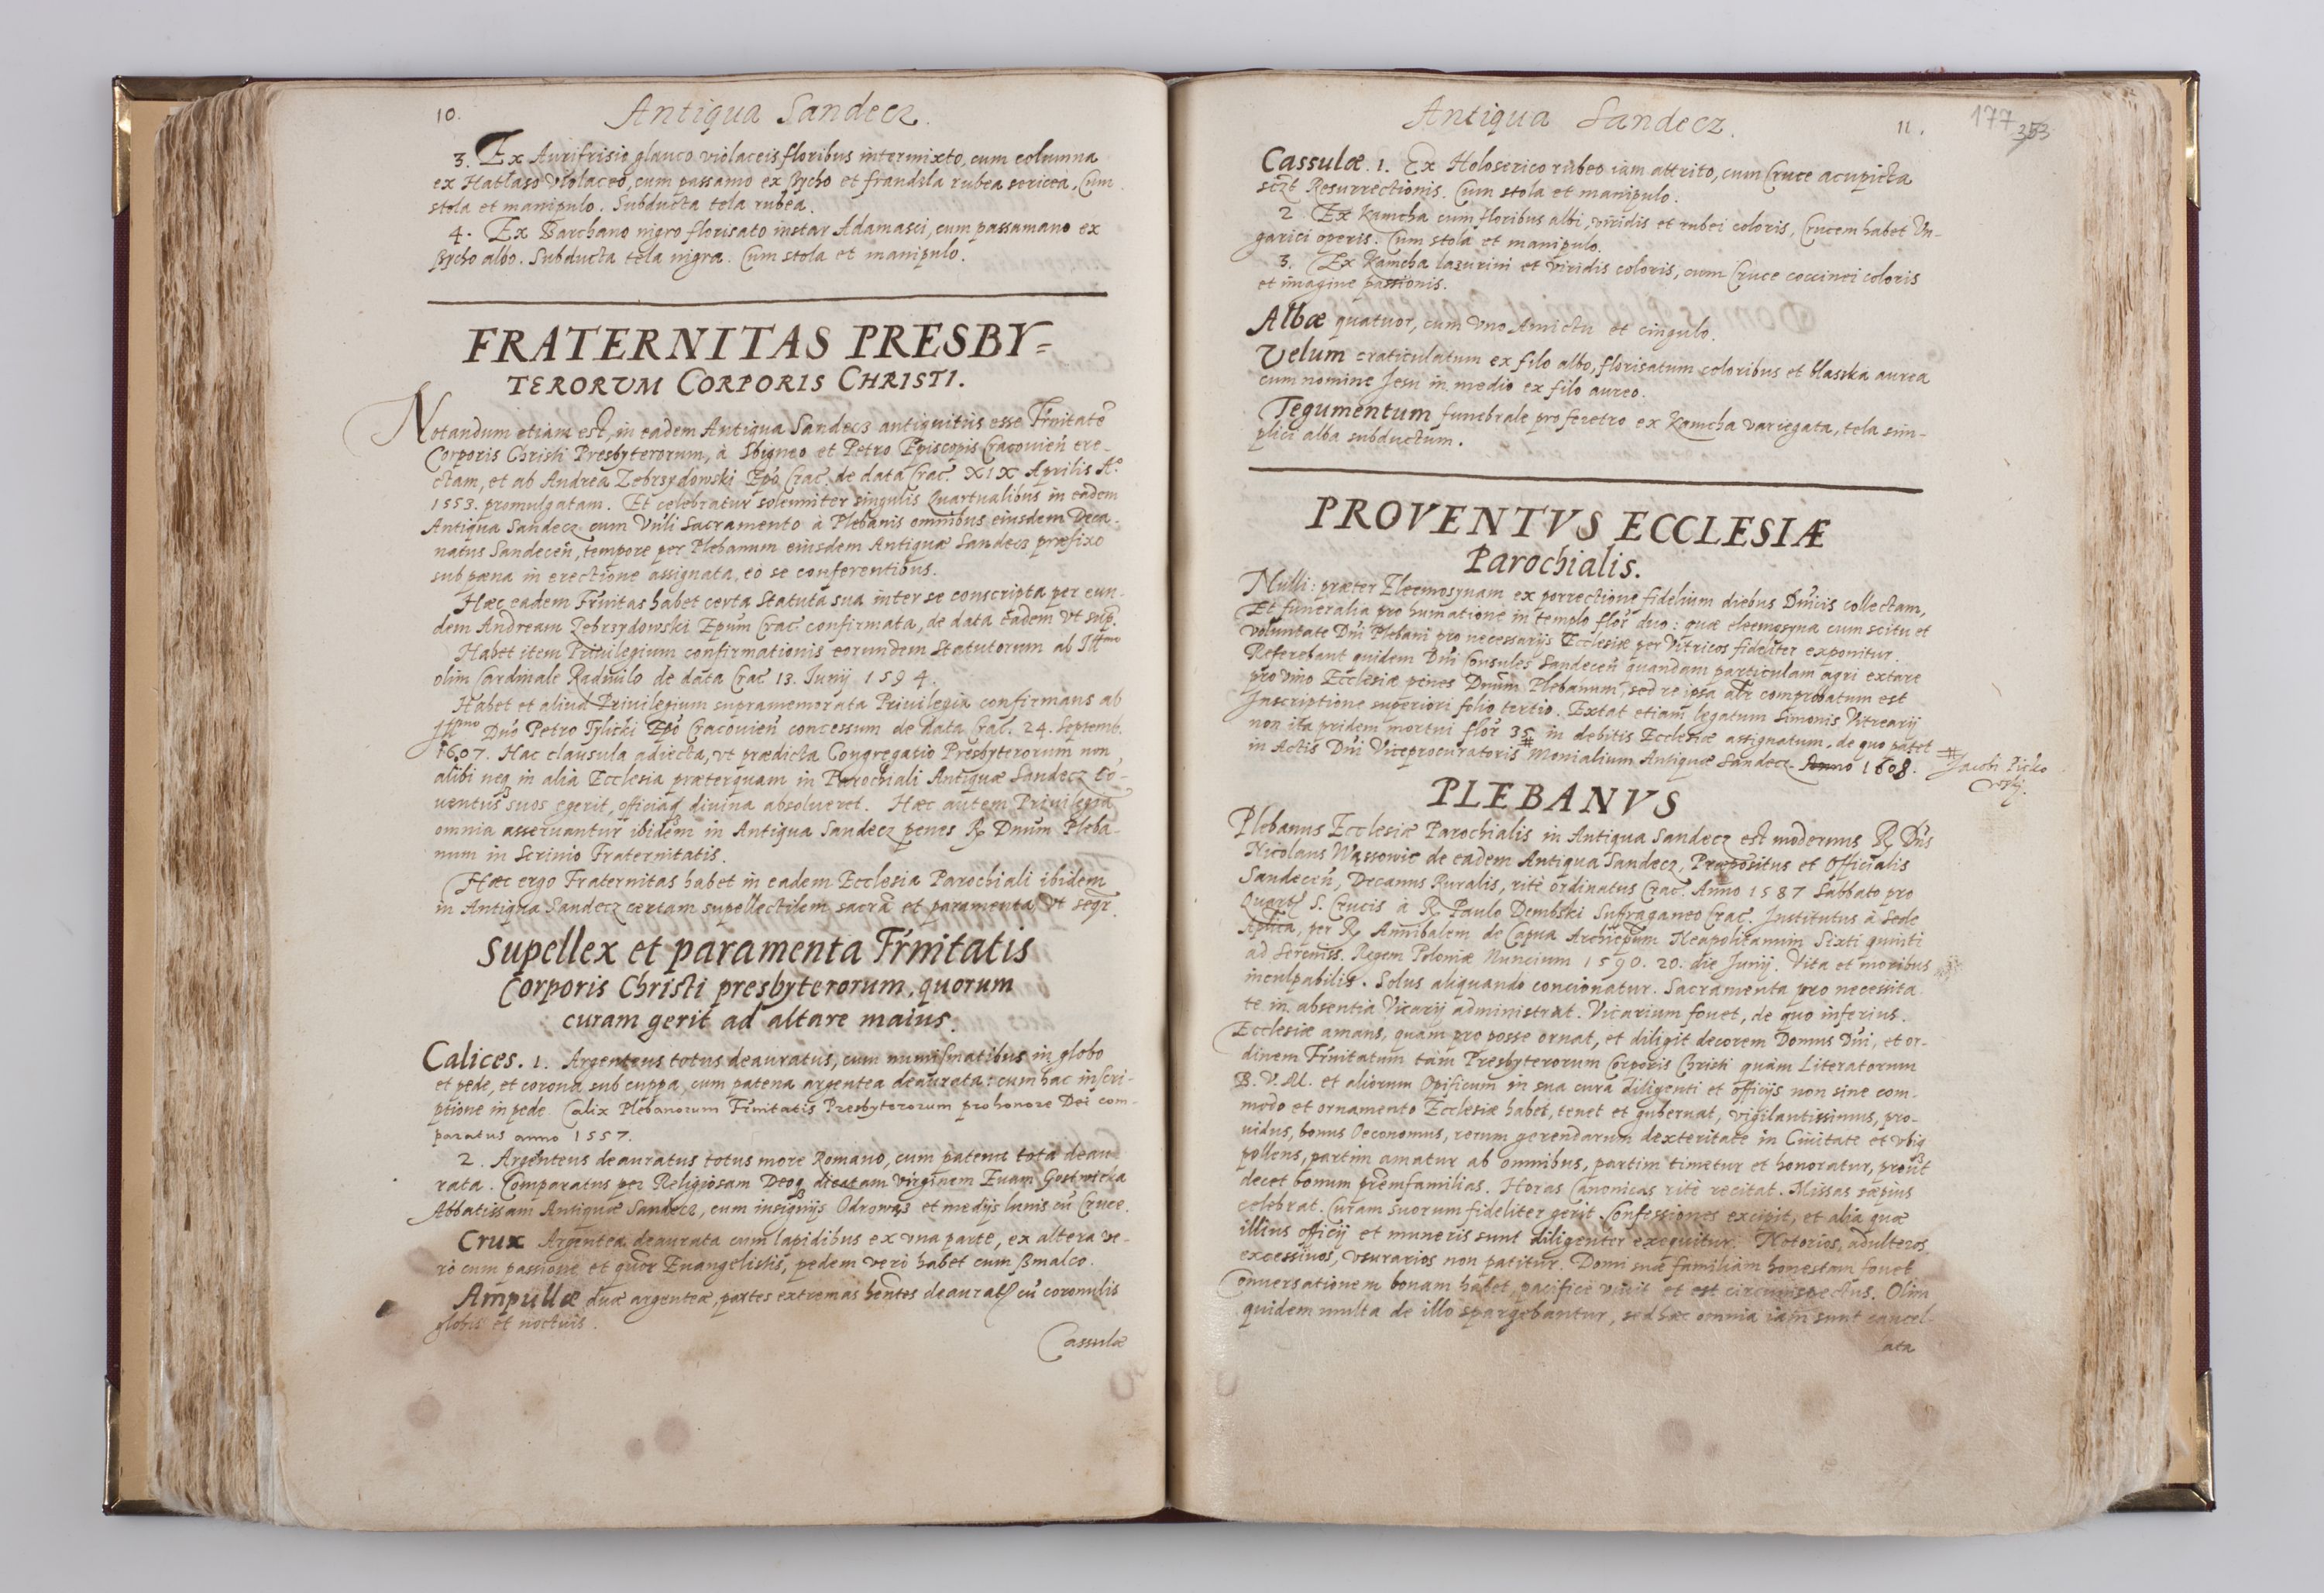 10.
Antiqua Sandecz.
3. Ex Aurifrisio glauco violaceis floribus intermixto, cum columna
ex Hatlaso violaceo, cum passamo ex Bycho et frandsla rubea sericea, Cum
stola et manipulo. Subducta tela rubea.
4. Ex Barchano nigro florisato instar Adamasci, cum passamano ex
Bycho albo. Subducta tela nigra. Cum stola et manipulo.
FRATERNITAS PRESBY=
TERORVM CORPORIS CHRISTI.
Notandum etiam est, in eadem Antiqua Sandecz antiquitus esse Frnitatē
Corporis Christi Presbyterorum, à Sbigneo et Petro Episcopis Cracovień ere-
ctam, et ab Andrea Zebrzydowski Epō Crac. de data Crac. XIX Aprilis A.°
1553. promulgatam. Et celebratur solenniter singulis Quartualibus in eadem
Antiqua Sandecz cum Vnli Sacramento à Plebanis omnibus eiusdem Deca-
natus Sandeceń, tempore per Plebanum eiusdem Antiquæ Sandecz præfixo
sub pæna in erectione assignata, eò se conferentibus.
Hæc eadem Frnitas habet certa Statuta sua inter se conscripta per eun-
dem Andream Zebrzydowski Epum Crac. confirmata, de data eadem vt sup.
Habet item Priuilegium confirmationis eorundem Statutorum ab Illmo
olim Cardinale Radiuilo de data Crac 13. Iunij 1594.
Habet et aliud Priuilegium supramemorata Priuilegia confirmans ab
Illmo Dno Petro Tylicki Epō Cracouień concessum de data Crac. 24. Septemb.
1607. Hac clausula adiecta, vt prædicta Congregatio Presbyterorum non
alibi neq3 in alia Ecclesia præterquam in Parochiali Antiquæ Sandecz Cō-
uentus suos egerit, officiaq3 diuina absolueret. Hæc autem Priuilegia
omnia asseruantur ibidem in Antiqua Sandecz penes R. Dnum Pleba-
num in Scrinio Fraternitatis.
Hæc ergo Fraternitas habet in eadem Ecclesia Parochiali ibidem
in Antiqua Sandecz certam supellectilem sacrā et paramenta vt seqr.
Supellex et paramenta Frnitatis
Corporis Christi presbyterorum, quorum
curam gerit ad altare maius.
Calices. 1. Argenteus totus deauratus, cum numismatibus in globo
et pede, et corona sub cuppa, cum patena argentea deaurata: cum hac inscri-
ptione in pede. Calix Plebanorum Frnitatis Presbyterorum pro honore Dei com-
paratus anno 1557.
2. Argenteus deauratus totus more Romano, cum patena tota deau
rata. Comparatus per Religiosam Deoq3 dicatam virginem Euam Gostwicka
Abbatissam Antiquæ Sandecz, cum insignijs Odrowąż et medijs lunis cū Cruce.
Crux Argentea deaurata cum lapidibus ex vna parte, ex altera ve-
rò cum passione et quor Euangelistis, pedem verò habet cum smalco.
Ampullæ duæ argenteæ, partes extremas hentes deaurat. cū coronulis
globis et noctuis.
Cassulæ
Antiqua Sandecz.
11.
177
353
Cassulæ. 1. Ex Holoserico rubeo iam attrito, cum Cruce acupicta
sczt Resurrectionis. Cum stola et manipulo.
2. Ex Kamcha cum floribus albi, viridis et rubei coloris, Crucem habet Vn-
garici operis. Cum stola et manipulo.
3. Ex Kamcha lazurini et viridis coloris, cum Cruce coccinei coloris
et imagine passionis.
Albæ quatuor, cum vno Amictu et cingulo.
Velum craticulatum ex filo albo, florisatum coloribus et blasska aurea
cum nomine Jesu in medio ex filo aureo.
Tegumentum funebrale pro feretro ex Kamcha variegata, tela sim-
plici alba subductum.
PROVENTVS ECCLESIÆ
Parochialis.
Nulli: præter Eleemosynam ex porrectione fidelium diebus Dnicis collectam,
Et funeralia pro humatione in templo flor duo: quæ eleemosyna cum scitu et
voluntate Dni Plebani pro necessarijs Ecclesiæ per Vitricos fideliter exponitur.
Referebant quidem Dni Consules Sandeceń quandam particulam agri extare
pro vino Ecclesiæ penes Dnum Plebanum, sed re ipsa alr comprobatum est
Inscriptione superiori folio tertio. Extat etiam legatum Simonis Vitrearij
non ita pridem mortui flor 35 in debitis Ecclesiæ assignatum, de quo patet
in Actis Dni Viceprocuratoris # Monialium Antiquæ Sandecz Anno 1608.
# Jacobi Picko
PLEBANVS
Plebanus Ecclesiæ Parochialis in Antiqua Sandecz est modernus R. Dns
Nicolaus Wassowic de eadem Antiqua Sandecz, Præpositus et Officialis
Sandeceń, Decanus Ruralis, ritè ordinatus Crac. Anno 1587 Sabbato pro
Quart. S. Crucis à R. Paulo Dembski Suffraganeo Crac. Institutus à Sede
Aplica, per R. Annibalem de Capua Archiepum Neapolitanum Sixti quinti
ad Sereniss. Regem Poloniæ Nuncium 1590. 20. die Junij. Vita et moribus
inculpabilis. Solus aliquando concionatur. Sacramenta pro necessita
te in absentia Vicarij administrat. Vicarium fouet, de quo inferius.
Ecclesiæ amans, quam pro posse ornat, et diligit decorem Domus Dni, et or-
dinem Frnitatum tam Presbyterorum Corporis Christi quàm Literatorum
B. V. M. et aliorum Opificum in sua cura diligenti et officijs non sine com-
modo et ornamento Ecclesiæ habet, tenet et gubernat, vigilantissimus, pro-
uidus, bonus Oeconomus, rerum gerendarum dexteritate in Ciuitate et vbiq3
pollens, partim amatur ab omnibus, partim timetur et honoratur, prout
decet bonum premfamilias. Horas Canonicas ritè recitat. Missas sæpius
celebrat. Curam suorum fideliter gerit. Confessiones excipit, et alia quæ
illius officij et muneris sunt diligenter exequitur. Notorios, adulteros
excessiuos, vsurarios non patitur. Domi suæ familiam honestam fouet
Conuersationem bonam habet, pacificè viuit et est circumspectus. Olim
quidem multa de illo spargebantur, sed hæc omnia iam sunt cancel-
ata